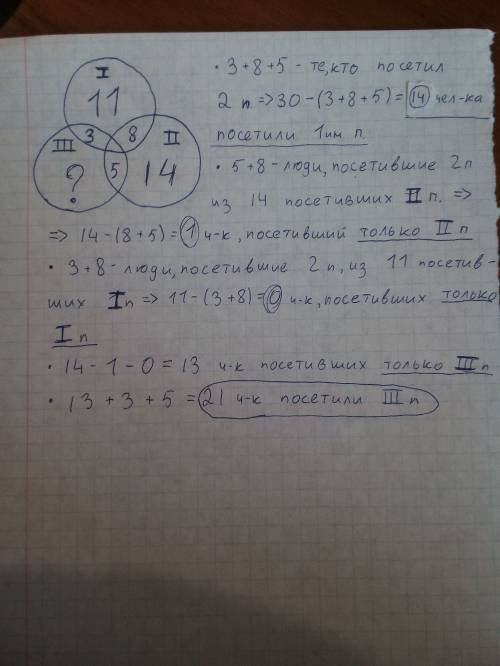 I
11
III 3 8 II
? 5 14
• 3+8+5 - те, кто посетил
2 п. => 30-(3+8+5)= 14 чел-ка
посетили 1им п.
• 5+8 - люди, посетившие 2п
из 14 посетивших II п. =>
=> 14-(8+5)= 1 ч-к, посетивший только II п
• 3+8 - люди, посетившие 2п, из 11 посетив-
ших I п => 11-(3+8)= 0 ч-к, посетивших только
I п
• 14-1-0=13 ч-к посетивших только III п
• 13+3+5=21 ч-к посетили III п